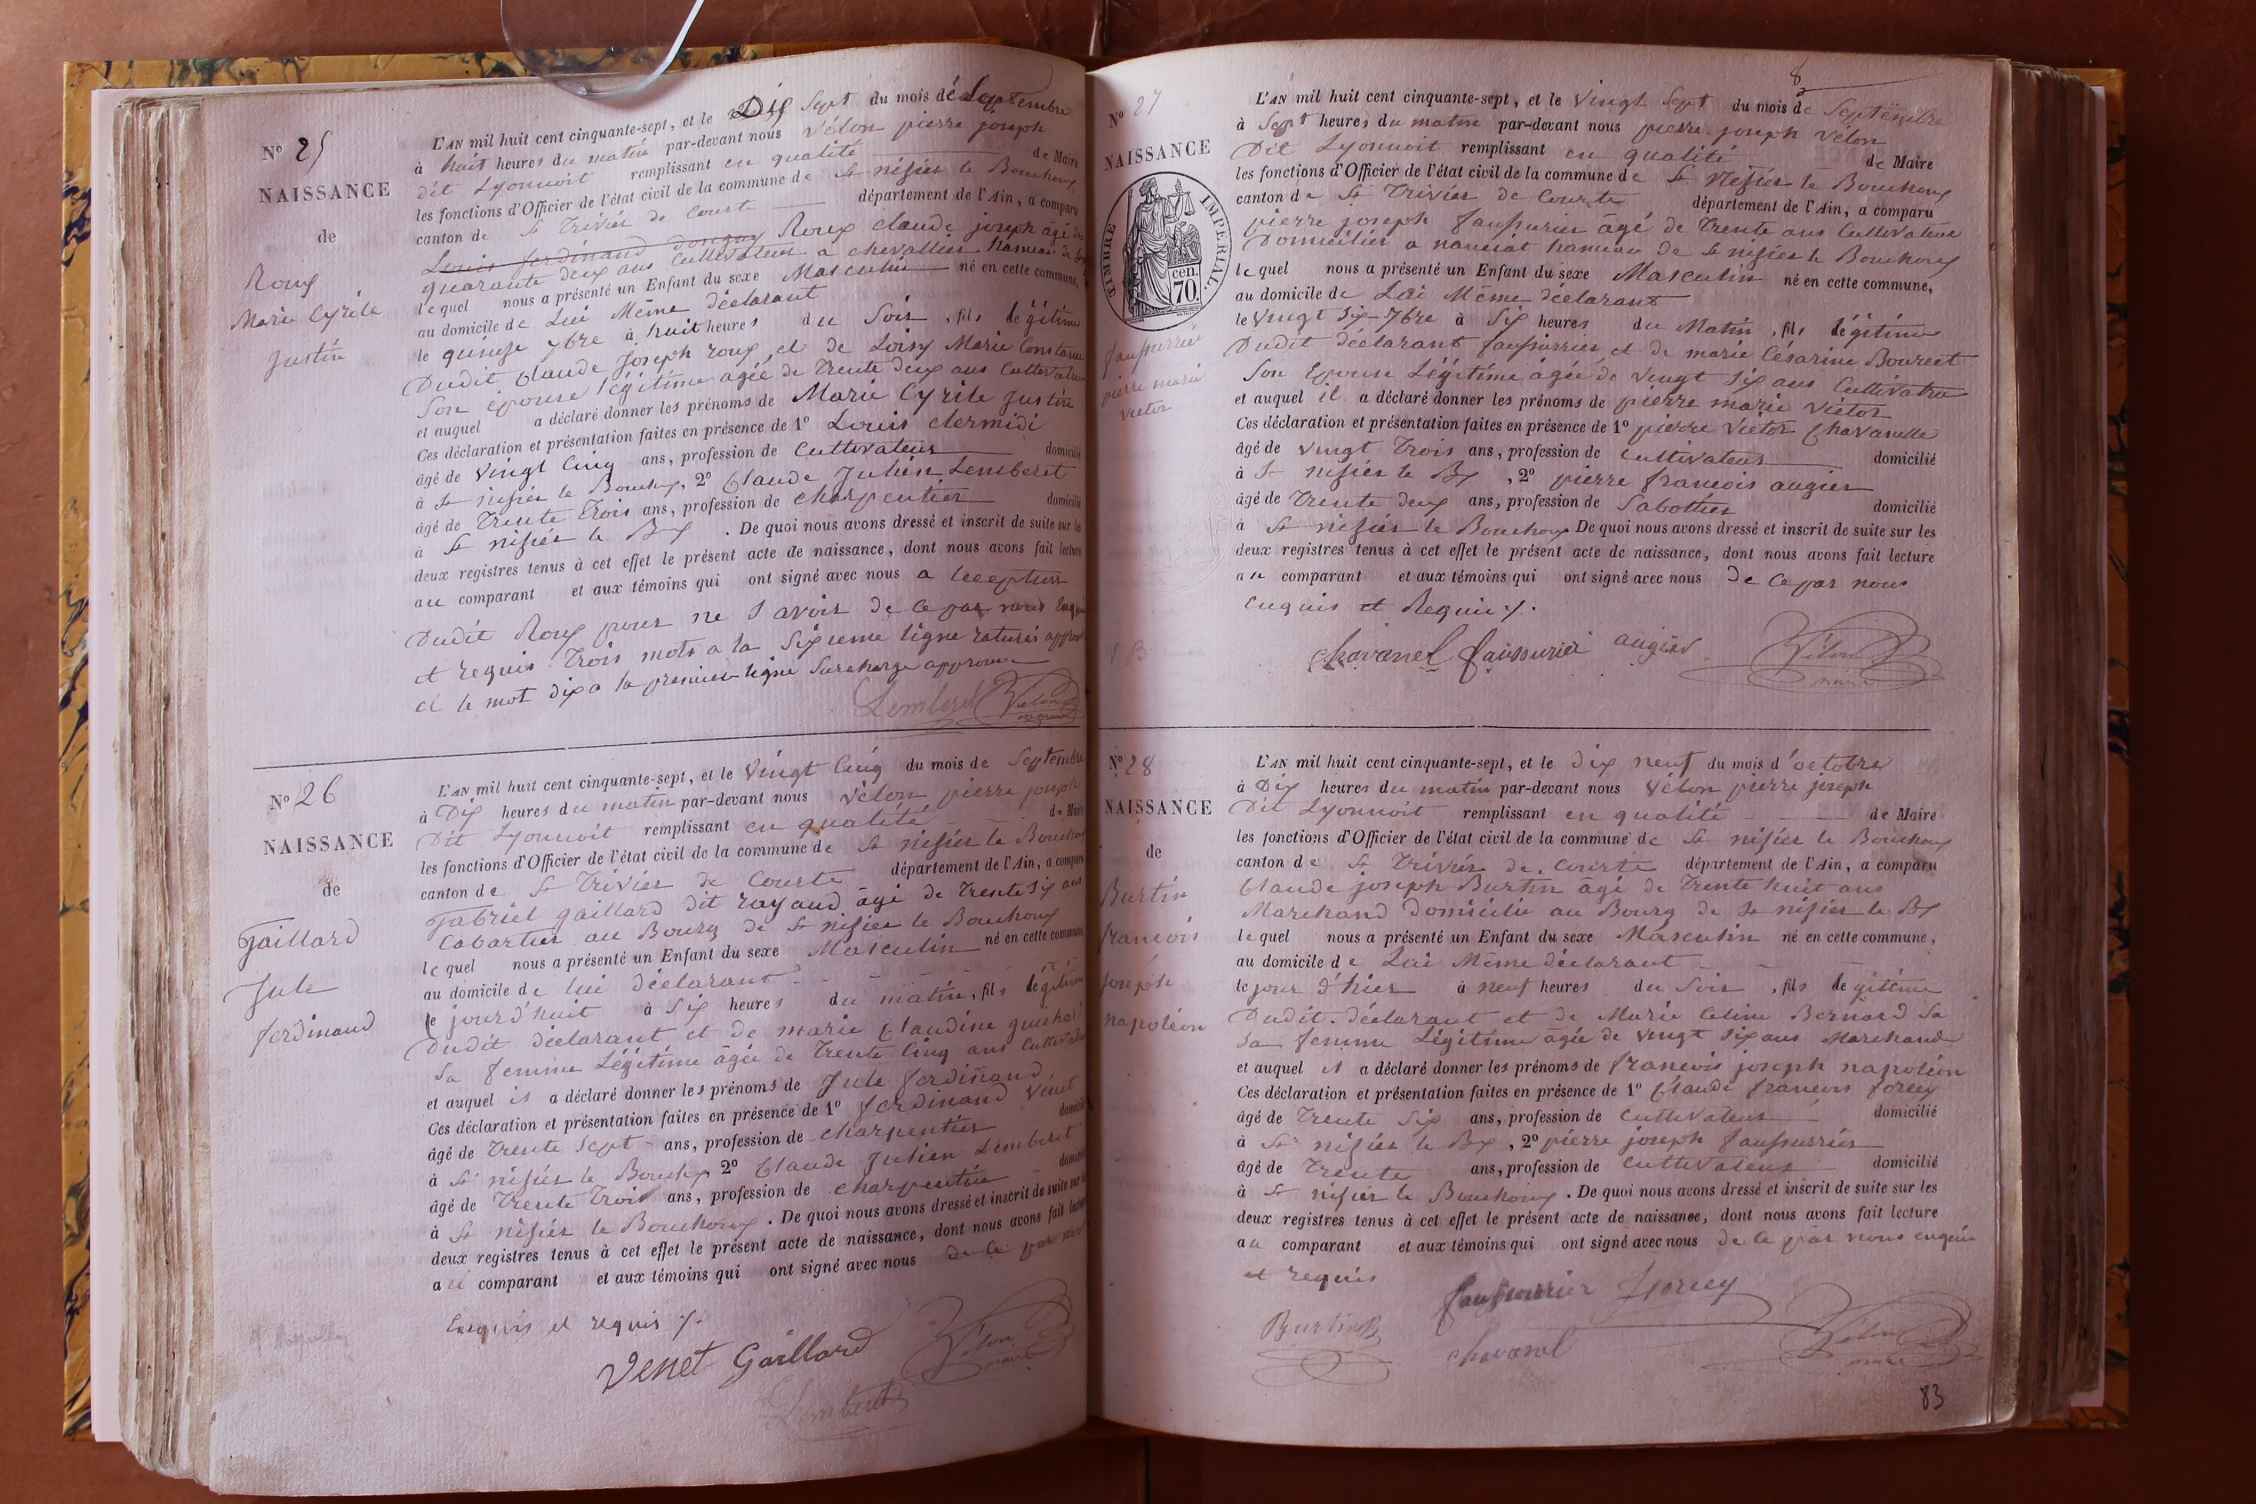 N° 25
NAISSANCE
de
Roux
Marie Cyrile
Justin
L'AN mil huit cent cinquante-sept, et le Dix Sept du mois de Septembre
à huit heures du matin par-devant nous Vélon pierre joseph
dit Lyonnoit remplissant en qualité de Maire
les fonctions d'Officier de l'état civil de la commune de St nisier le Bouchoux
canton de St Trivier de Courte département de l'Ain, a comparu
Louis ferdinand Roux claude joseph agé de
quarante deux ans Cultivateur a chevallier hameau de
lequel nous a présenté un Enfant du sexe Masculin né en cette commune,
au domicile de Lui Même déclarant
le quinze 7bre à huit heures du Soir, fils légitime
Dudit Claude Joseph roux, et de Loisy Marie Constance
Son épouse légitime agée de Trente deux ans Cultivatrice
et auquel a déclaré donner les prénoms de Marie Cyrile Justin
Ces déclaration et présentation faites en présence de 1° Louis clermidi
âgé de Vingt Cinq ans, profession de Cultivateur domicilié
à St nisier le Bouchx, 2° Claude Julien Lemberet
âgé de Trente Trois ans, profession de charpentier domicilié
à St nisier le Bx. De quoi nous avons dressé et inscrit de suite sur les
deux registres tenus à cet effet le présent acte de naissance, dont nous avons fait lecture
au comparant et aux témoins qui ont signé avec nous a lexception
Dudit Roux pour ne Savoir de ce par nous Enquis
et requis. Trois mots a la Sixieme ligne raturés approuvé
et le mot dix a la premier ligne Surcharge approuvé
Lemberet Vélon maire
N° 26
NAISSANCE
de
Gaillard
Jule
ferdinand
L'AN mil huit cent cinquante-sept, et le Vingt Cinq du mois de Septembre
à Dix heures du matin par-devant nous Vélon pierre joseph
Dit Lyonnoit remplissant en qualité de Maire
les fonctions d'Officier de l'état civil de la commune de St nisier le Bouchoux
canton de St Trivier de Courte département de l'Ain, a comparu
Gabriel gaillard dit rayaud âgé de Trente Six ans
Cabartier au Bourg de St nisier le Bouchoux
lequel nous a présenté un Enfant du sexe Masculin né en cette commune
au domicile de lui déclarant
le jour d'huit à Six heures du matin, fils légitime
Dudit déclarant et de marie Claudine guichard
Sa femme Légitime âgée de Trente Cinq ans Cultivatrice
et auquel il a déclaré donner les prénoms de Jule ferdinand
Ces déclaration et présentation faites en présence de 1° ferdinand Venet
âgé de Trente Sept ans, profession de charpentier domicilié
à St nisier le Bouchx 2° Claude Julien Lemberet
âgé de Trente Trois ans, profession de charpentier domicilié
à St nisier le Bouchoux. De quoi nous avons dressé et inscrit de suite sur les
deux registres tenus à cet effet le présent acte de naissance, dont nous avons fait lecture
au comparant et aux témoins qui ont signé avec nous de ce par nous
Enquis et requis /.
Venet Gaillard Vélon maire
Lemberet
N° 27
NAISSANCE
TIMBRE IMPERIAL.
70 cen.
faussurrier
pierre marie
victor
L'AN mil huit cent cinquante-sept, et le Vingt Sept du mois de Septembre
à Sept heures du matin par-devant nous pierre joseph Vélon
Dit Lyonnoit remplissant en qualité de Maire
les fonctions d'Officier de l'état civil de la commune de St Nisier le Bouchoux
canton de St Trivier de Courte département de l'Ain, a comparu
pierre joseph faussurier âgé de Trente ans Cultivateur
Domicilier a nanciat hameau de St nisier le Bouchoux
lequel nous a présenté un Enfant du sexe Masculin né en cette commune,
au domicile de Lui Même déclarant
le Vingt Six-7bre à Six heures du Matin, fils légitime
Dudit déclarant faussurrier et de marie Césarine Bourcet
Son Epouse Légitime âgée de Vingt Six ans Cultivatrice
et auquel il a déclaré donner les prénoms de pierre marie Victor
Ces déclaration et présentation faites en présence de 1° pierre Victor Chavanelle
âgé de Vingt Trois ans, profession de Cultivateur domicilié
à St nisier le Bx, 2° pierre francois augier
âgé de Trente deux ans, profession de Sabottier domicilié
à St nisier le Bouchoux De quoi nous avons dressé et inscrit de suite sur les
deux registres tenus à cet effet le présent acte de naissance, dont nous avons fait lecture
au comparant et aux témoins qui ont signé avec nous de ce par nous
Enquis et Requis /.
chavanel faussurier augier Vélon maire
N° 28
NAISSANCE
de
Burtin
francois
joseph
napoléon
L'AN mil huit cent cinquante-sept, et le dix neuf du mois d'octobre
à Dix heures du matin par-devant nous Vélon pierre joseph
Dit Lyonnoit remplissant en qualité de Maire
les fonctions d'Officier de l'état civil de la commune de St nisier le Bouchoux
canton de St Trivier de Courte département de l'Ain, a comparu
Claude joseph Burtin âgé de Trente huit ans
Marchand domicilié au Bourg de St nisier le Bx
lequel nous a présenté un Enfant du sexe Masculin né en cette commune,
au domicile de Lui Même déclarant
le jour d'hier à neuf heures du Soir, fils légitime
Dudit déclarant et de Marie Celine Bernard Sa
Sa femme Légitime âgée de Vingt Six ans Marchande
et auquel il a déclaré donner les prénoms de francois joseph napoléon
Ces déclaration et présentation faites en présence de 1° Claude francois forey
âgé de Trente Six ans, profession de Cultivateur domicilié
à St nisier le Bx, 2° pierre joseph faussurrier
âgé de Trente ans, profession de Cultivateur domicilié
à St nisier le Bouchoux. De quoi nous avons dressé et inscrit de suite sur les
deux registres tenus à cet effet le présent acte de naissance, dont nous avons fait lecture
au comparant et aux témoins qui ont signé avec nous de ce par nous enquis
et requis
faussurrier forey
Burtin chavanel Vélon maire
83